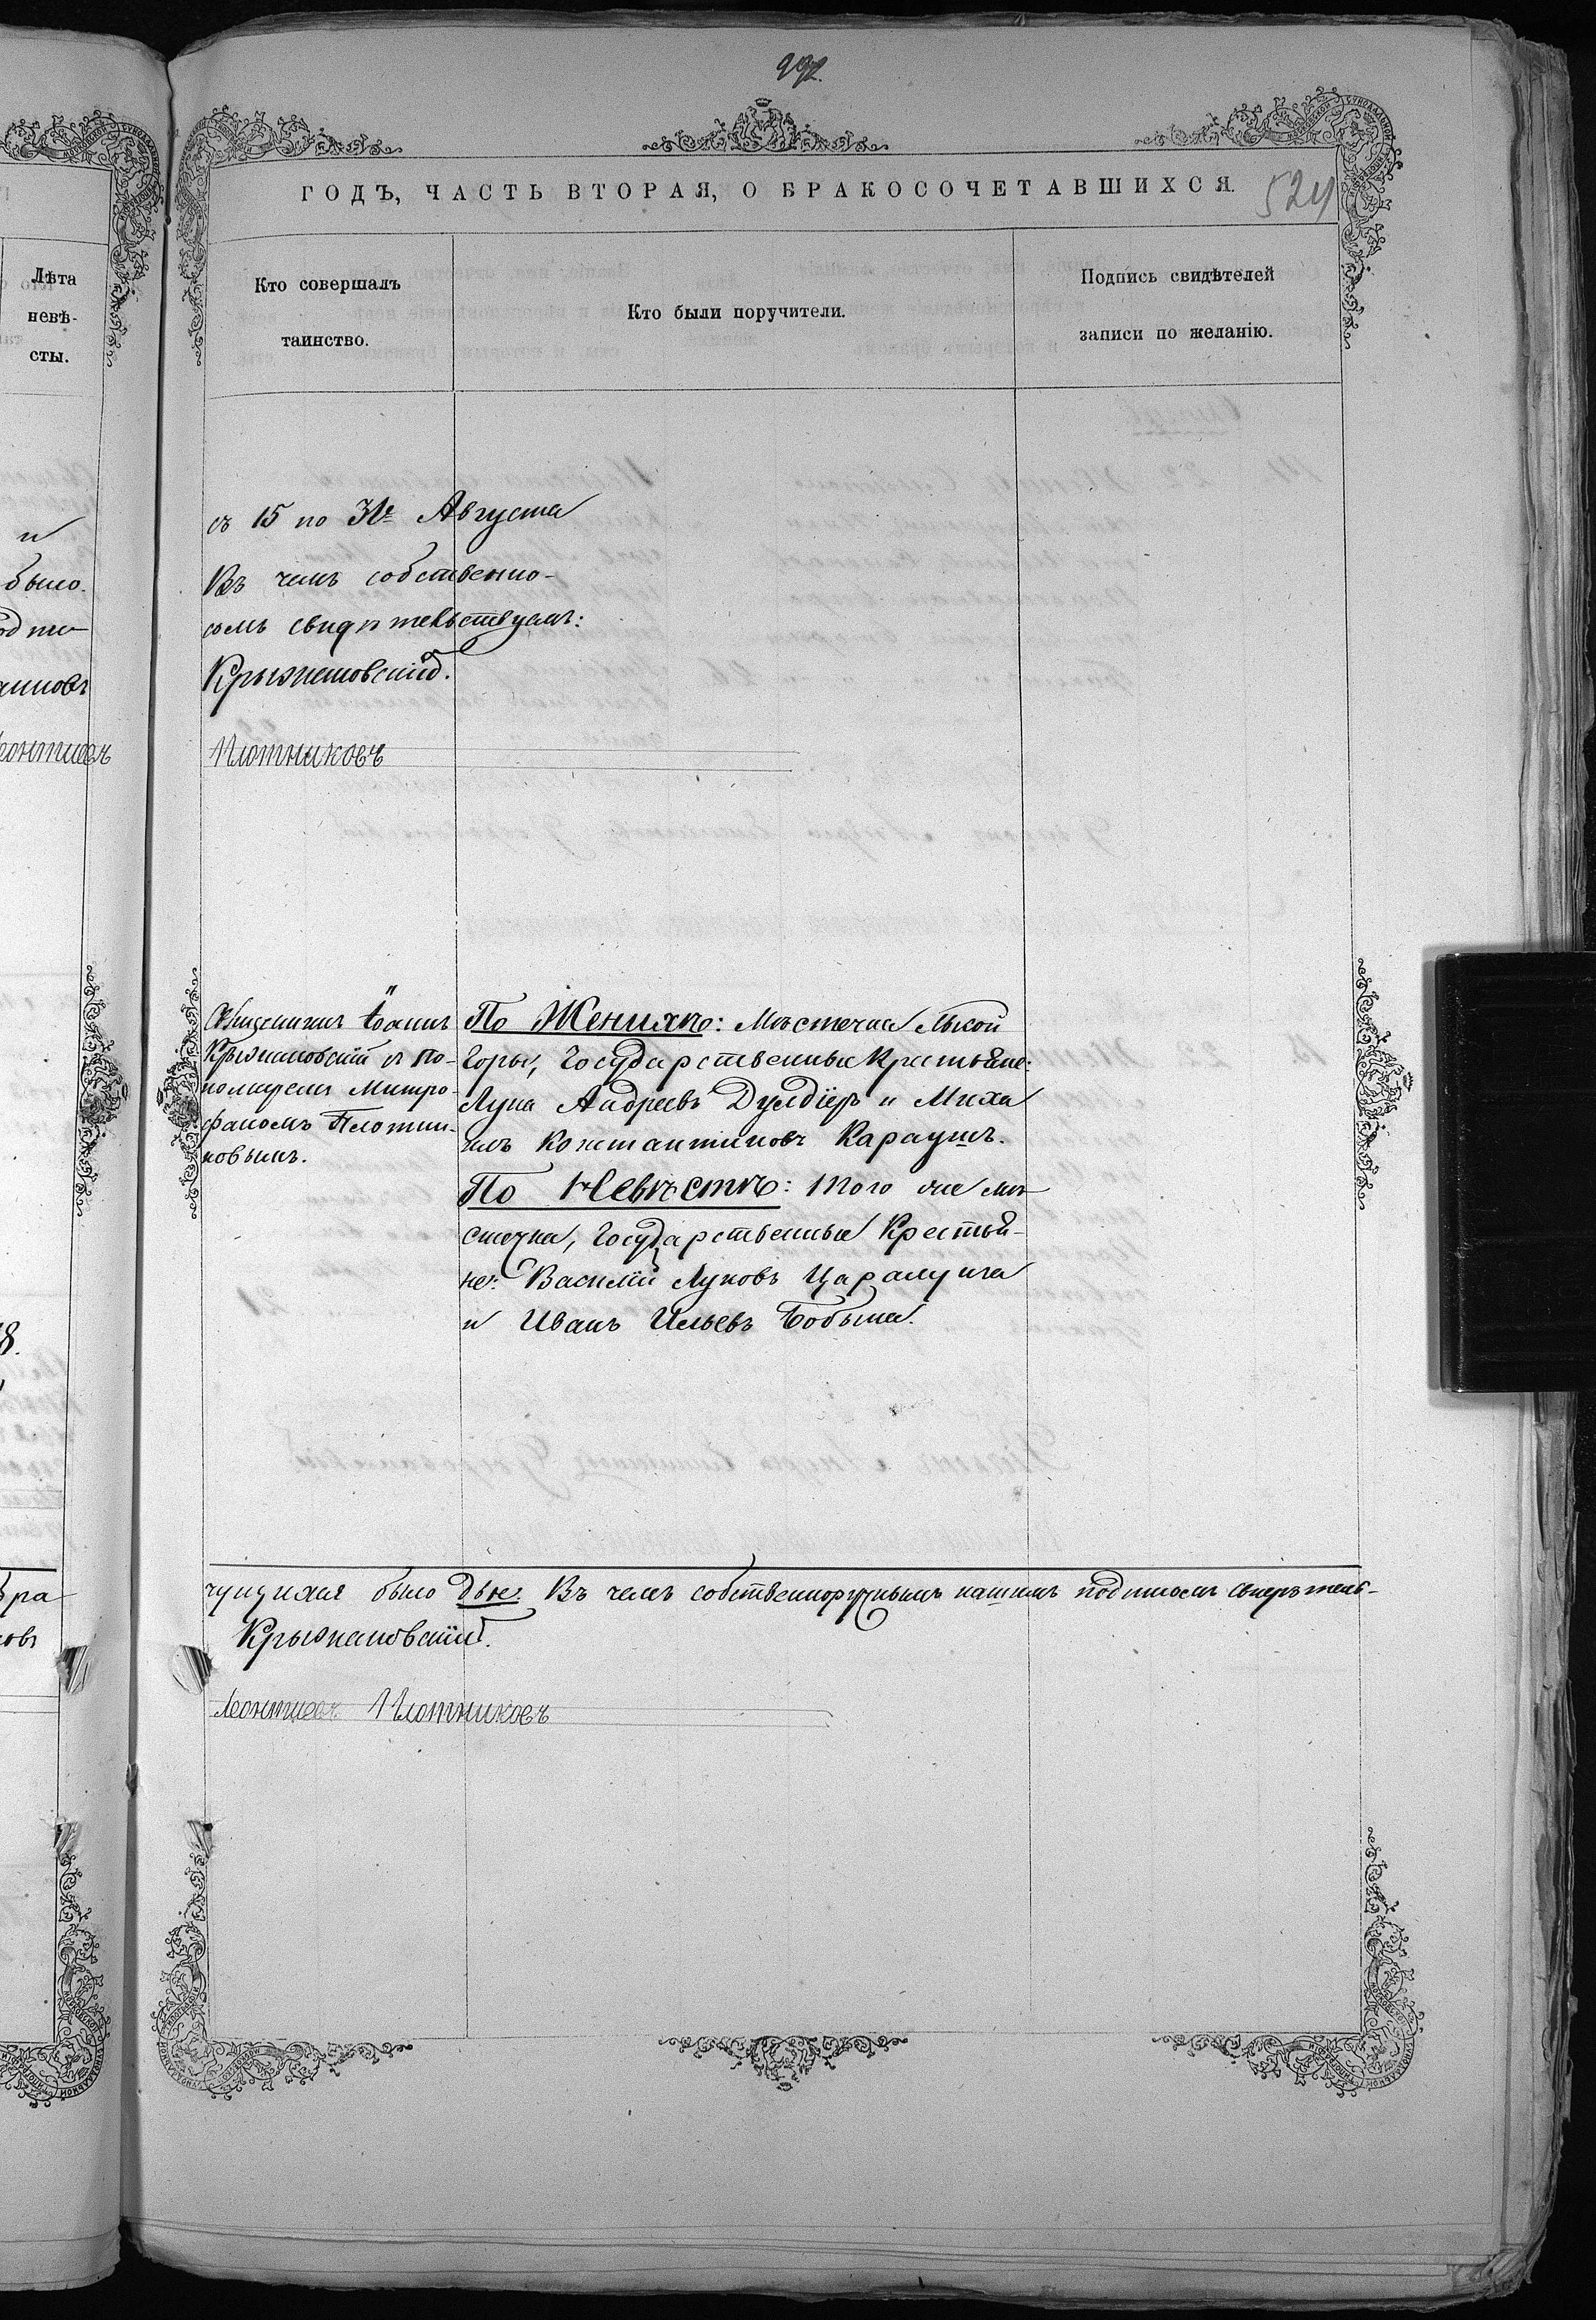 992.
ГОДЪ, ЧАСТЬ ВТОРАЯ, О БРАКОСОЧЕТАВШИХСЯ.
524
Лѣта
невѣ-
сты.
Кто совершалъ
таинство.
Кто были поручители.
Подпись свидѣтелей
записи по желанію.
и
было.
съ 15 по 31е Августа
Въ чемъ собственно-
сомъ свидѣтельствуемъ:
Крыжановскій.
Плотниковъ
Леонтиевъ
Священникъ Іоаннъ
Крыжановскій съ по-
номаремъ Митро-
фаномъ Плотни-
ковымъ.
По Женихѣ: Мѣстечка Лысой
Горы, Государственные Крестьяне:
Лука Андреевъ Дулдіеръ и Миха
илъ Константиновъ Караушъ.
По Невѣстѣ: Того же мѣ-
стечка, Государственные Крестья-
не: Василій Луковъ Царалунга
и Иванъ Ильевъ Бобына.
8.
бра
овъ
чущихся было двѣ. Въ чемъ собственноручнымъ нашимъ подписомъ свидѣтель-
Крыжановскій.
Леонтиевъ Плотниковъ